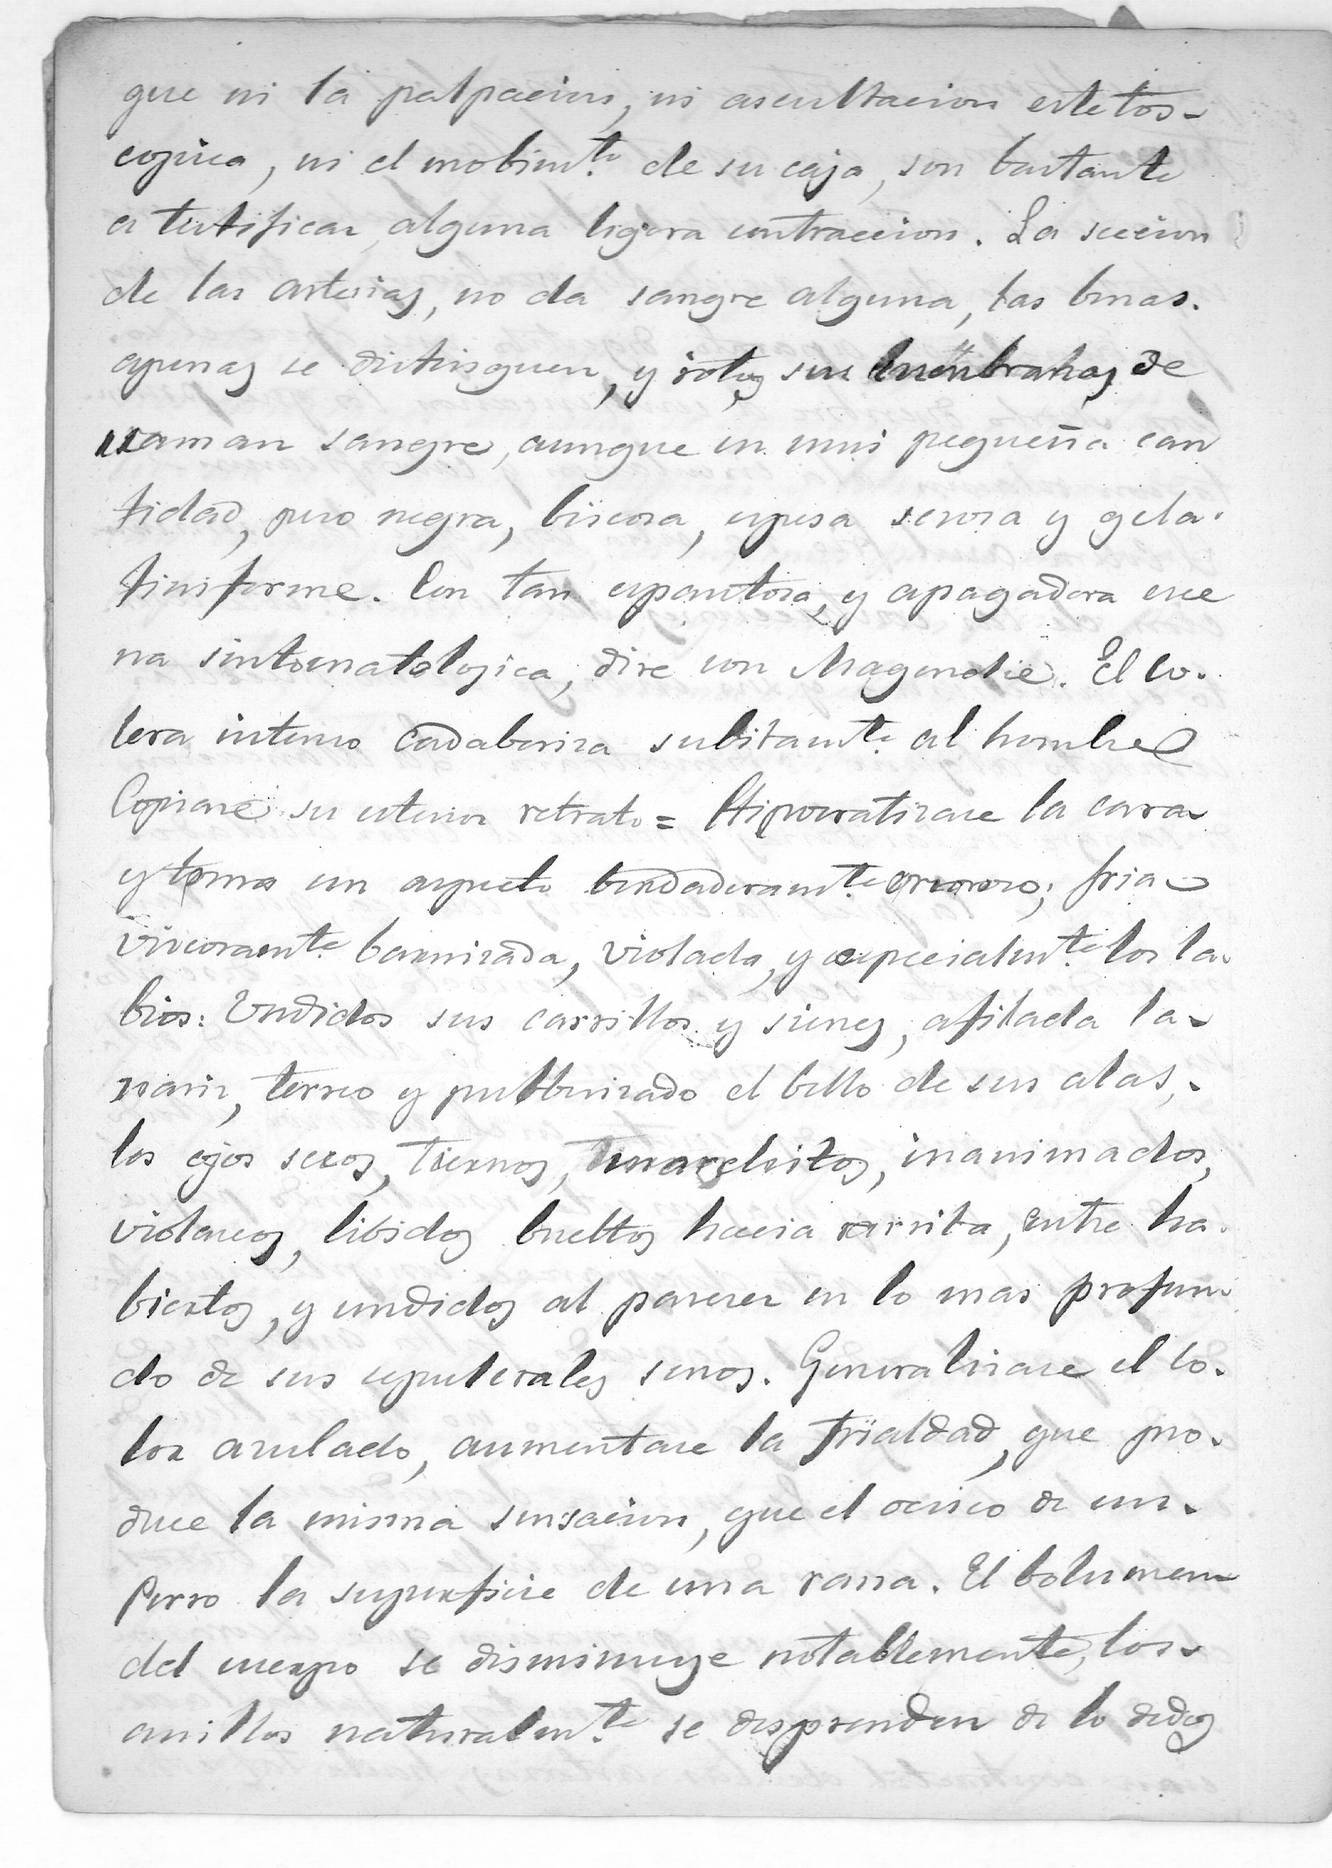 que ni la palpacion, ni ascultacion estetos-
copica, ni el mobimte. de su caja, son bastante
a testificar alguna ligera contraccion. La seccion
de las arterias, no da sangre alguna, las benas.
apenas se distinguen, y rotas sus membranas, de
rraman sangre, aunque en mui pequeña can
tidad, pero negra, biscosa, espesa serosa y gela-
tiniforme. Con tan espantosa, y apagadora esce
na sintomatologica, dire con Magendie. El co-
lera intenso cadaberiza subitamte. al hombre
Copiare su esterior retrato = Hipocratizase la cara
y toma un aspecto berdaderamte. fria
viscosamte. barnizada, violada, y especialmte. los la-
bios: Undidos sus carrillos y sienes, afilada la
nariz, terreo y pulberizado el bello de sus alas,
los ojos secos, tiernos, marchitos, inanimados,
violaceos, libidos bueltos hacia arriba, entre ha-
biertos, y undidos al parecer en lo mas profun-
do de sus sepulcrales senos. Generalizase el co-
lor azulado, aumentase la frialdad, que pro-
duce la misma sensacion, que el ocico de un
Perro la superficie de una rana. El bolumen
del cuerpo se disminuye notablemente, los
anillos naturalmte. se desprenden de lo dedos